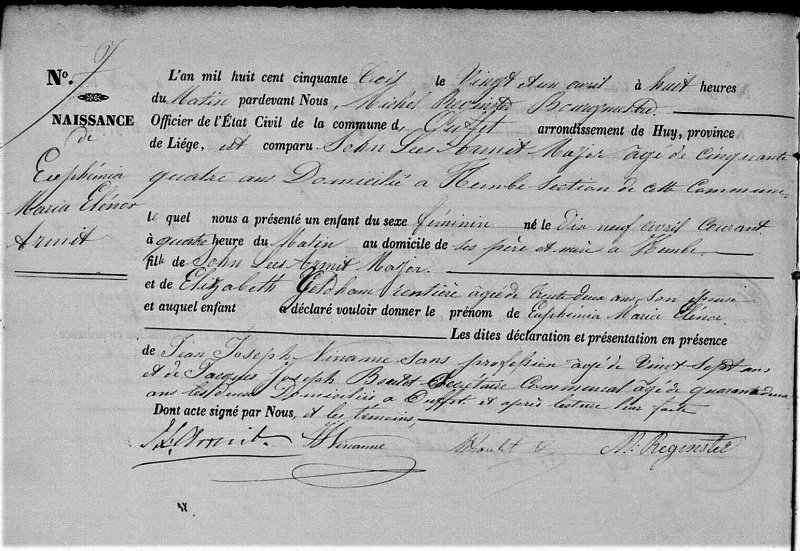 N.º 7
NAISSANCE
de
Euphémia
Maria Elenor
Armit
L'an mil huit cent cinquante trois le Vingt et un avril à huit heures
du Matin pardevant Nous, Michel Bourgmestre
Officier de l'État Civil de la commune d' Ouffet arrondissement de Huy, province
de Liége, est comparu John Lees Armit Major agé de cinquante
quatre ans Domicilié à Hembe Section de cette Commune
le quel nous a présenté un enfant du sexe féminin né le Dix neuf avril courant
à quatre heure du Matin au domicile de ses père et mère à Hembe
fille de John Lees Armit Major.
et de Elizabeth Geldham rentière agée de trente deux ans, son épouse
et auquel enfant a déclaré vouloir donner le prénom de Euphémia Maria Elenor
Les dites déclaration et présentation en présence
de Jean Joseph Ninanne sans profession agé de Vingt Sept ans
et de Jacques Joseph Secrétaire Communal agé de quarante deux
ans les deux Domiciliés à Ouffet et après lecture leur faite
Dont acte signé par Nous, et les témoins,
Armit. Ninanne M. Reginster